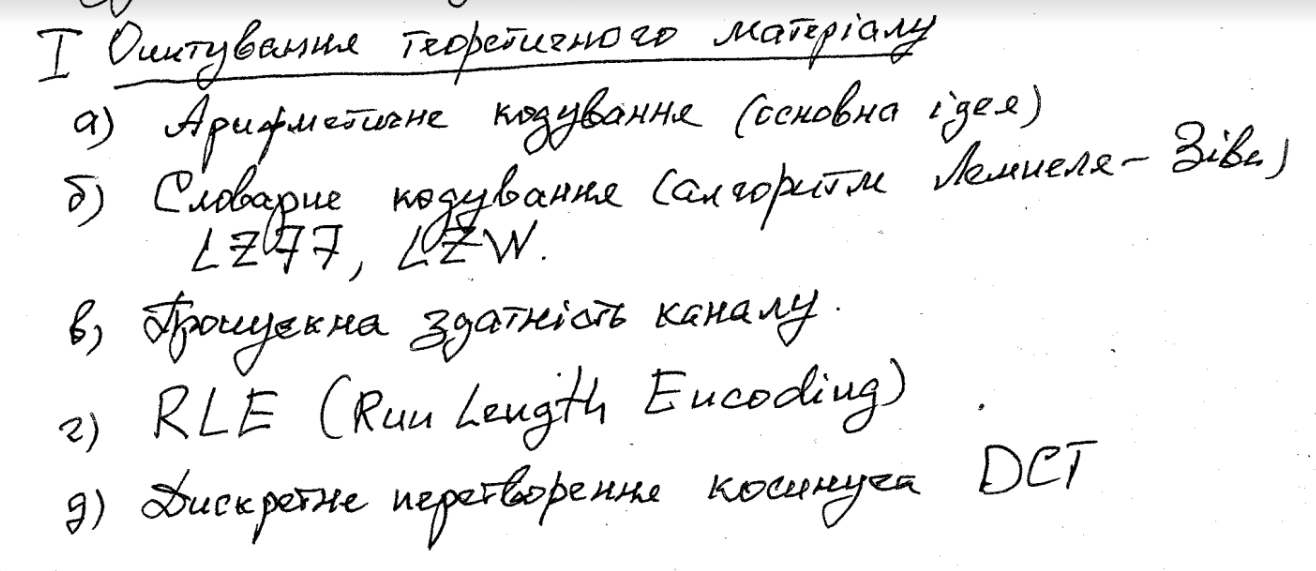 I Опитування теоретичного матеріалу
а) Арифметичне кодування (основна ідея)
б) Словарне кодування (алгоритм Лемпеля - Зіва)
LZ77, LZW.
в) Пропускна здатність каналу.
г) RLE (Run Length Encoding)
д) Дискретне перетворення косинуса DCT